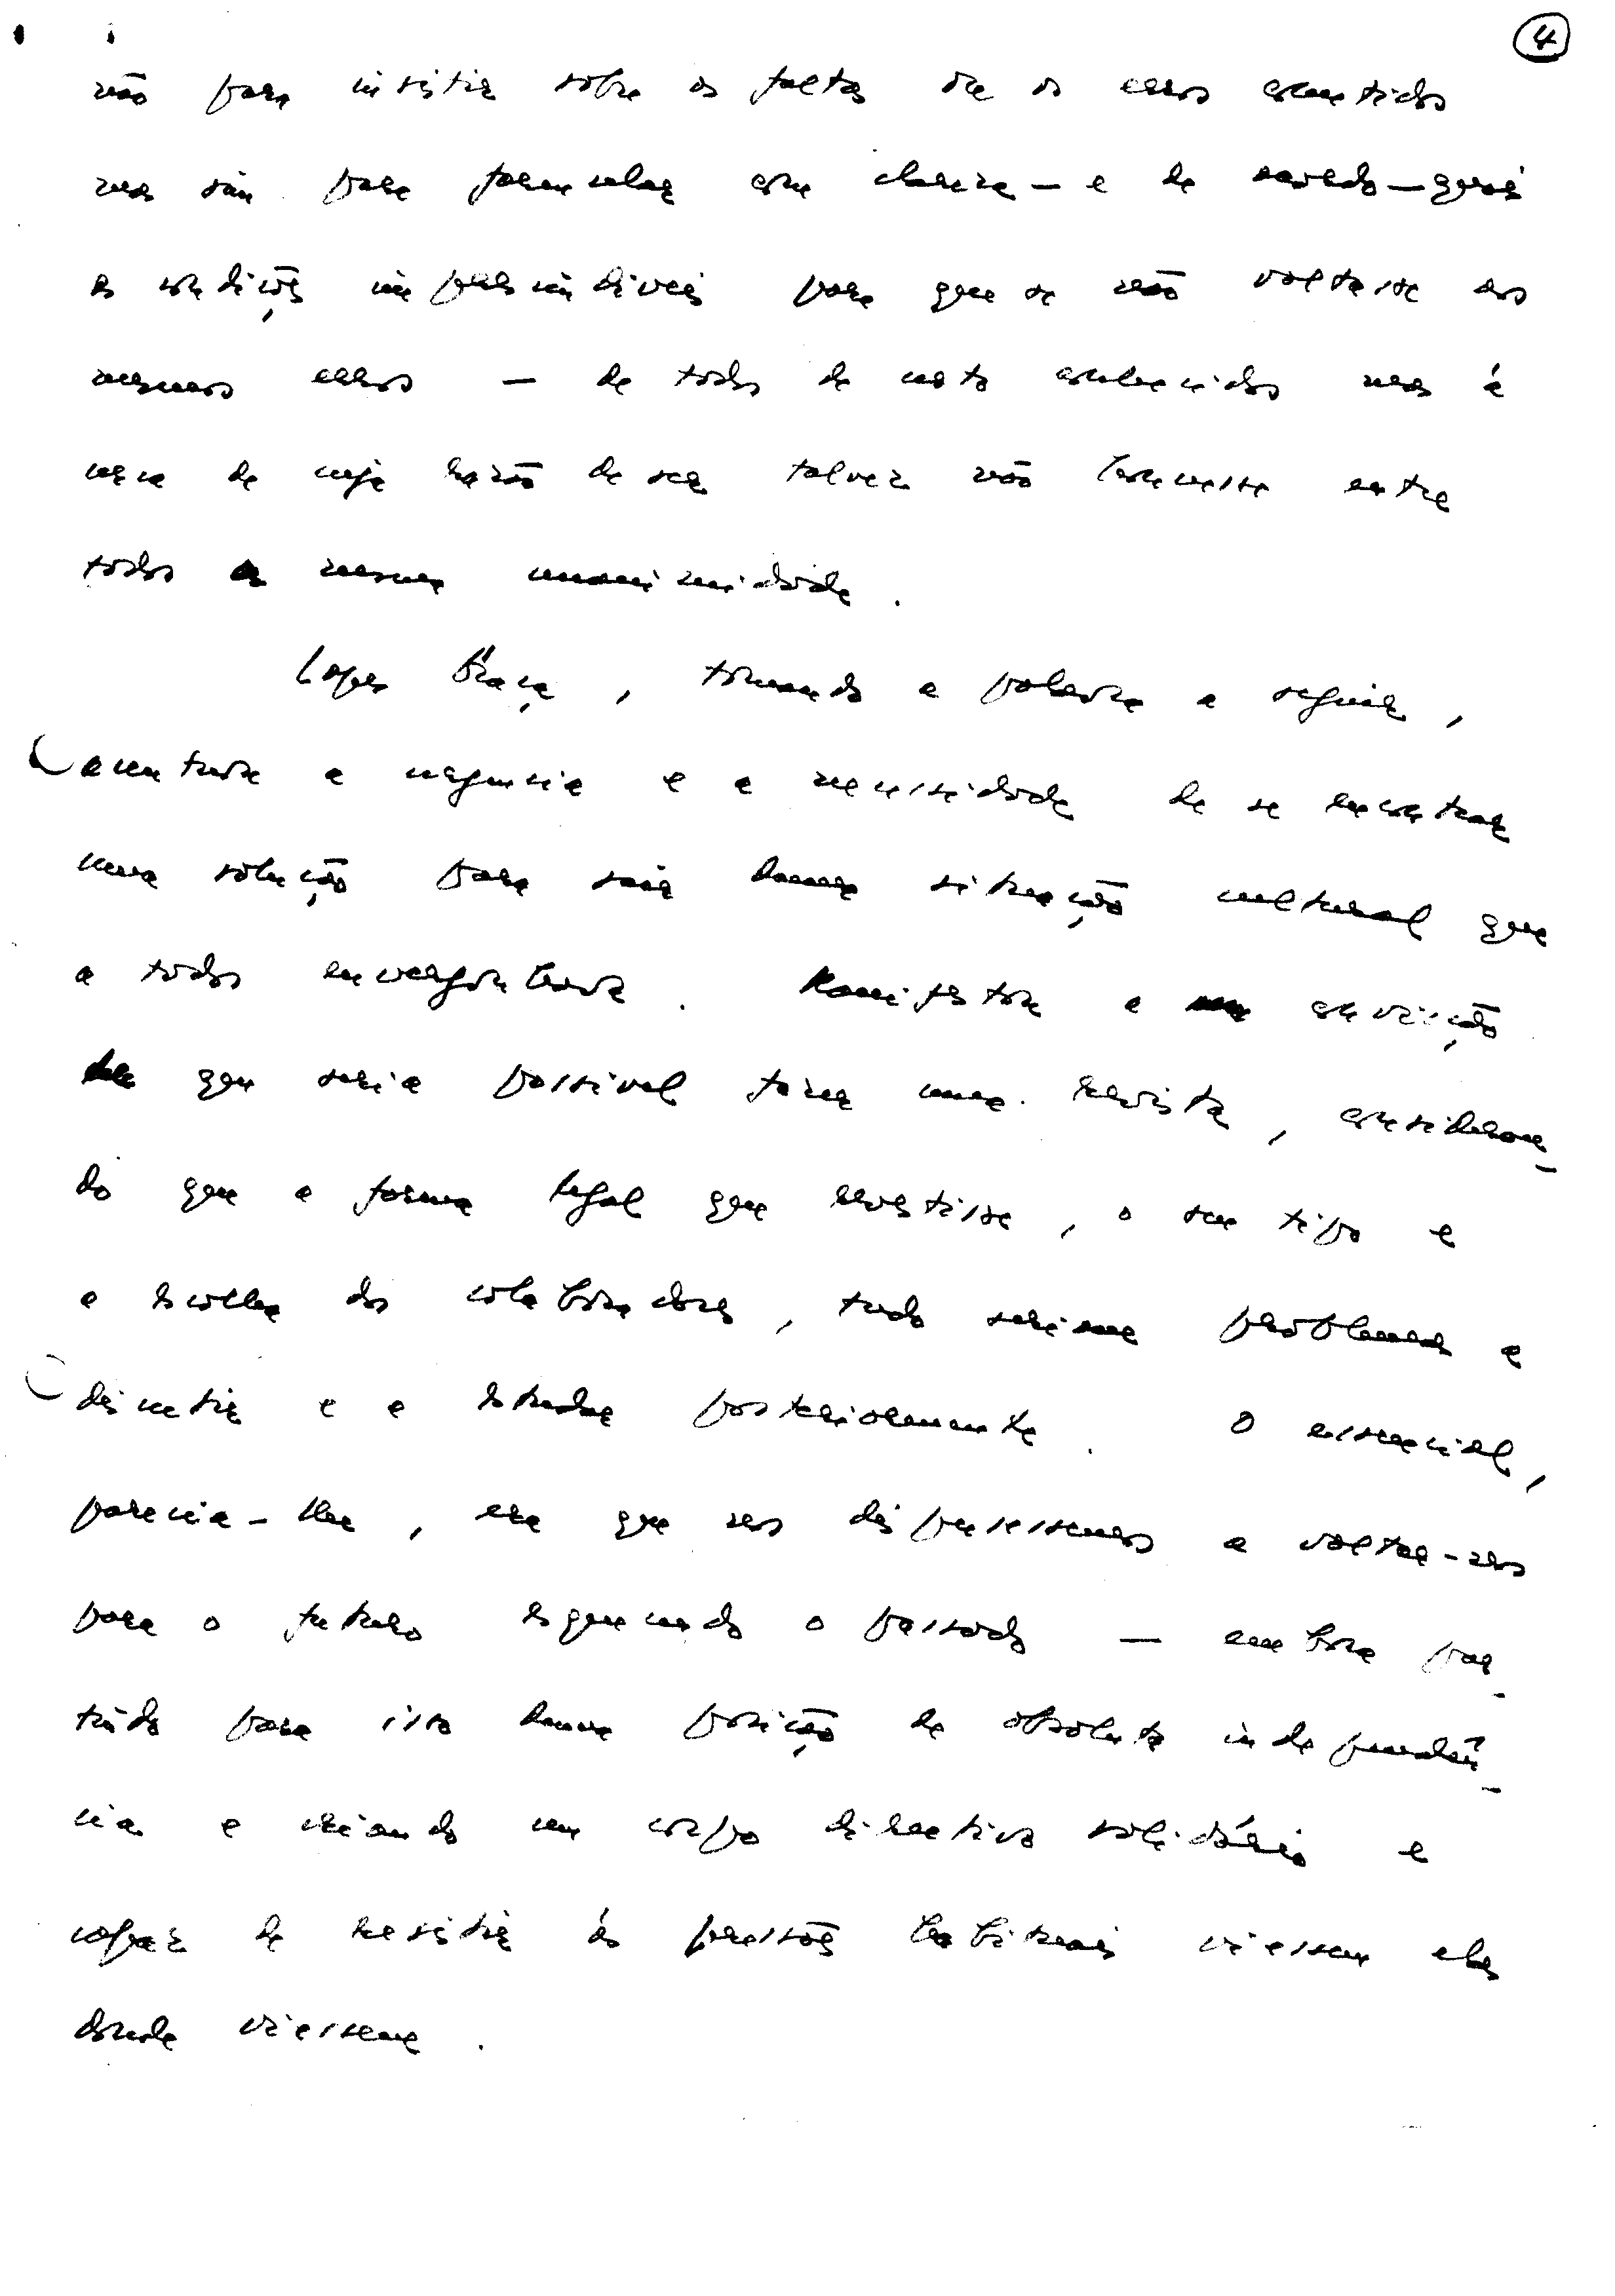 4
não para insistir sobre as faltas ou os erros cometidos
mas sim para formular com clareza — e de acordo — quais
as condições imprescindíveis para que se não voltasse aos
mesmos erros — de todos de resto conhecidos mas à
cerca de cuja razão de ser talvez não houvesse entre
todos a mesma unanimidade.
Lopes Graça, tomando a palavra a seguir,
acentuou a urgência e a necessidade de se encontrar
uma solução para sair duma situação cultural que
a todos envergonhava. Manifestou a convicção
de que seria possível fazer uma revista, consideran-
do que a forma legal que revestisse, o seu tipo e
a escolha dos colaboradores, tudo seriam problemas a
discutir e a estudar posteriormente. O essencial,
parecia-lhe, era que nos dispuséssemos a voltar-nos
para o futuro esquecendo o passado — embora par-
tindo para isso duma posição de absoluta independên-
cia e criando um corpo directivo solidário e
capaz de resistir às pressões habituais viessem elas
donde viessem.